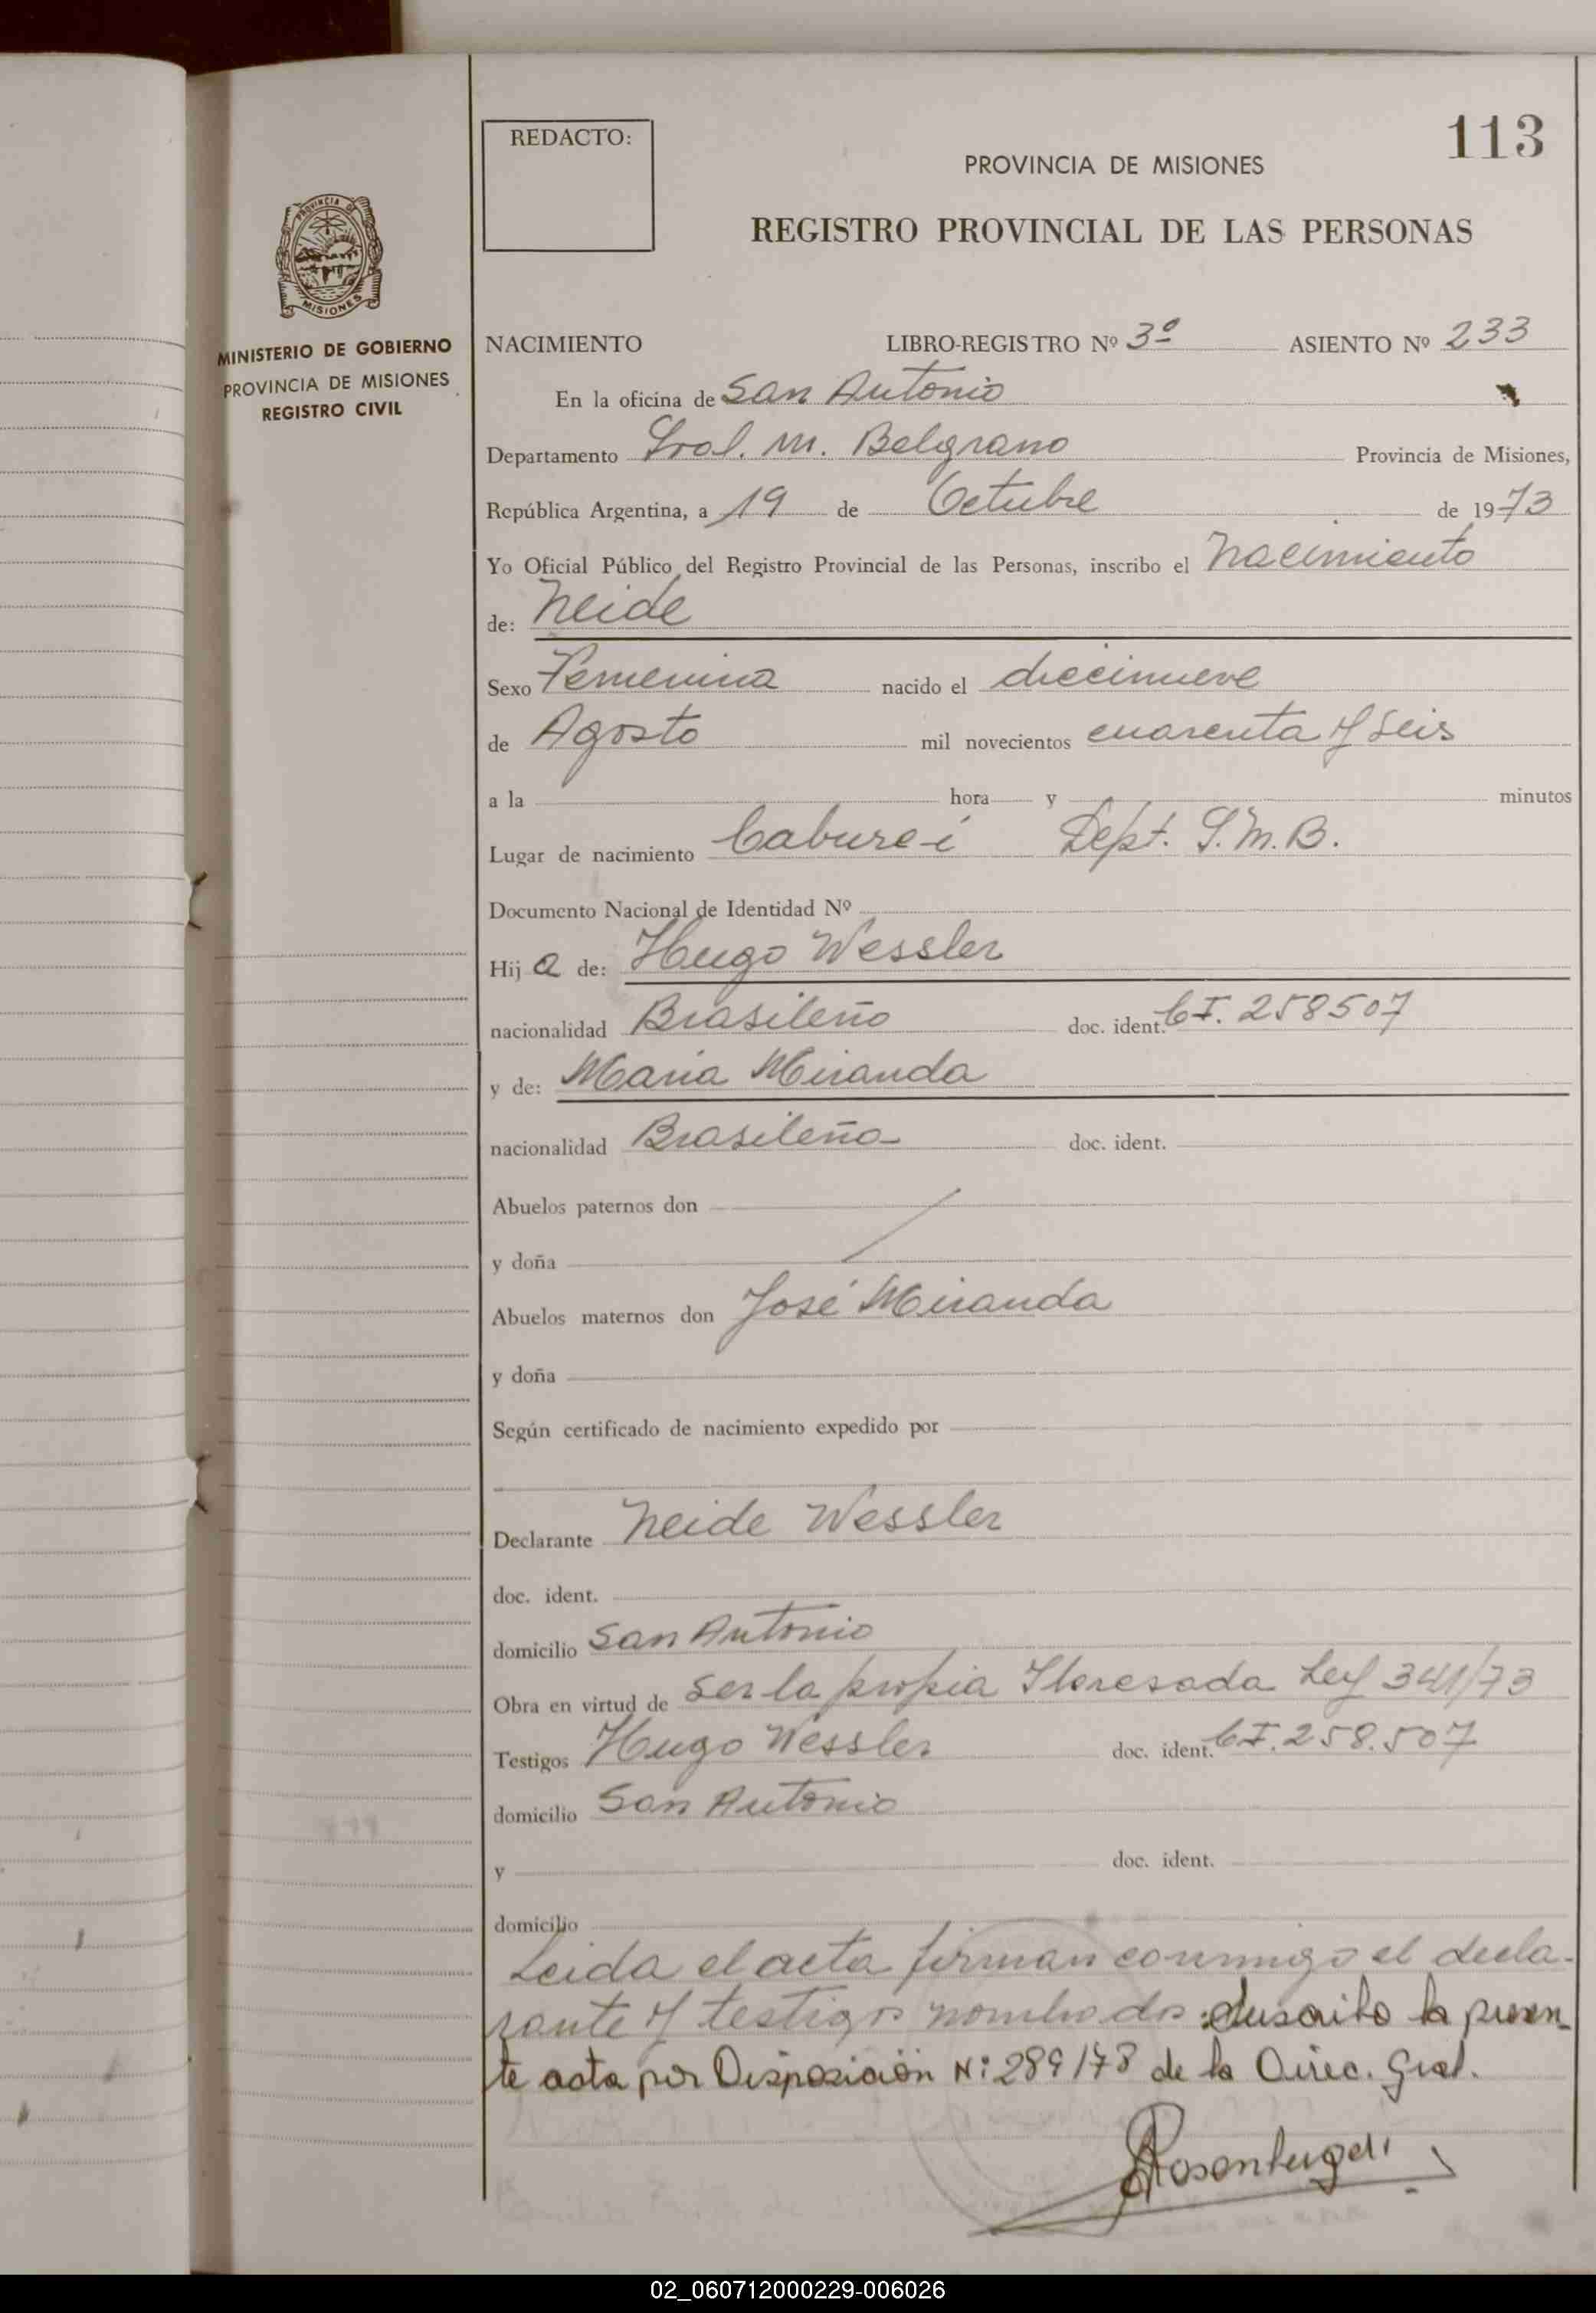 113
REDACTO:
PROVINCIA DE MISIONES
REGISTRO PROVINCIAL DE LAS PERSONAS
PROVINCIA DE
MISIONES
MINISTERIO DE GOBIERNO
PROVINCIA DE MISIONES
REGISTRO CIVIL
NACIMIENTO LIBRO-REGISTRO Nº 3º ASIENTO Nº 233
En la oficina de San Antonio
Departamento Gral. M. Belgrano Provincia de Misiones,
República Argentina, a 19 de Octubre de 1973
Yo Oficial Público del Registro Provincial de las Personas, inscribo el Nacimiento
de: Neide
Sexo Femenina nacido el diecinueve
de Agosto mil novecientos cuarenta y seis
a la hora y minutos
Lugar de nacimiento Cabure-i Dept. G.M.B.
Documento Nacional de Identidad Nº
Hij a de: Hugo Wessler
nacionalidad Brasileño doc. ident. CI. 258507
y de: Maria Miranda
nacionalidad Brasileña doc. ident.
Abuelos paternos don
y doña
Abuelos maternos don José Miranda
y doña
Según certificado de nacimiento expedido por
Declarante Neide Wessler
doc. ident.
domicilio San Antonio
Obra en virtud de ser la propia Ley 341/73
Testigos Hugo Wessler doc. ident. CI. 258.507
domicilio San Antonio
y doc. ident.
domicilio
Leida el acta firman conmigo el decla-
rante y testigos nombrados: suscribo la presen-
te acta por Disposición N: 289/78 de la Direc. Gral.
02_060712000229-006026